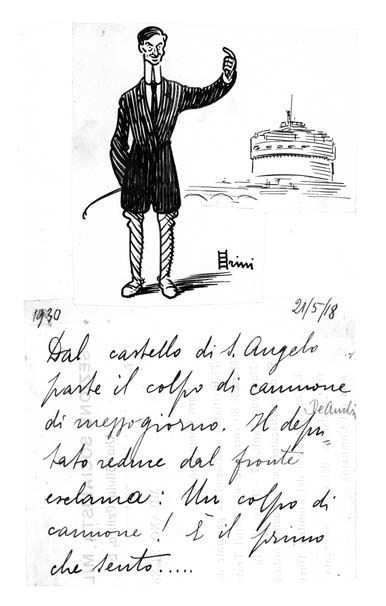 Erini
1930
21/5/18
Dal castello di S. Angelo
parte il colpo di cannone
di mezzogiorno. Il depu=
tato reduce dal fronte
esclama: Un colpo di
cannone! È il primo
che sento.....